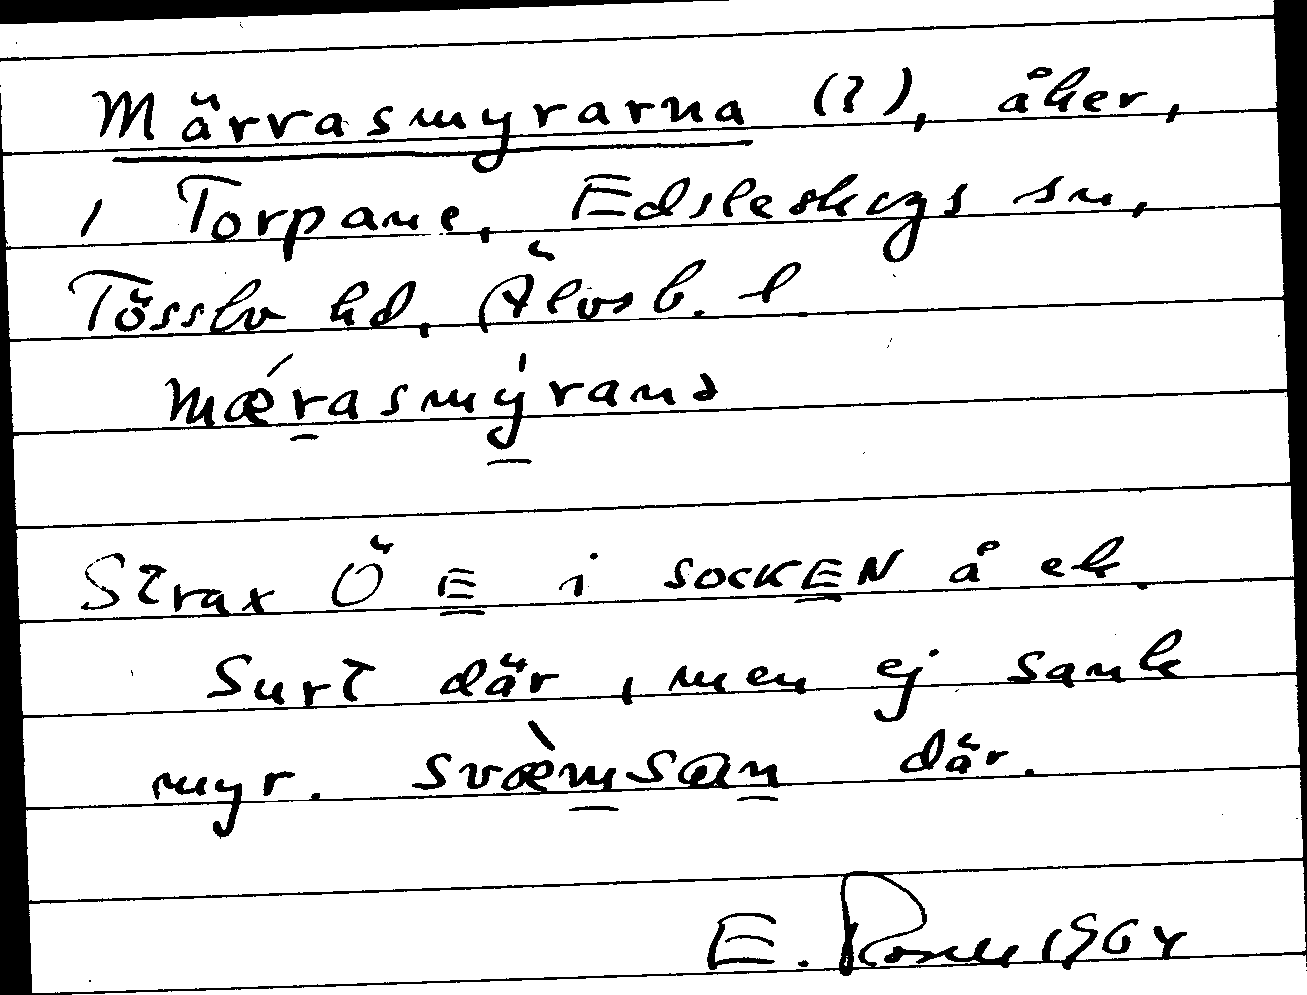 Märrasmyrarna (?), åker,
i Torpane, Edsleskogs sn,
Tössbo hd, Älvsb. l.
mǽrasmýranə
Strax Ö E i SOCKEN å ek.
Surt där, men ej sank
myr. svæ̀msan där.
E. Rosell 1964